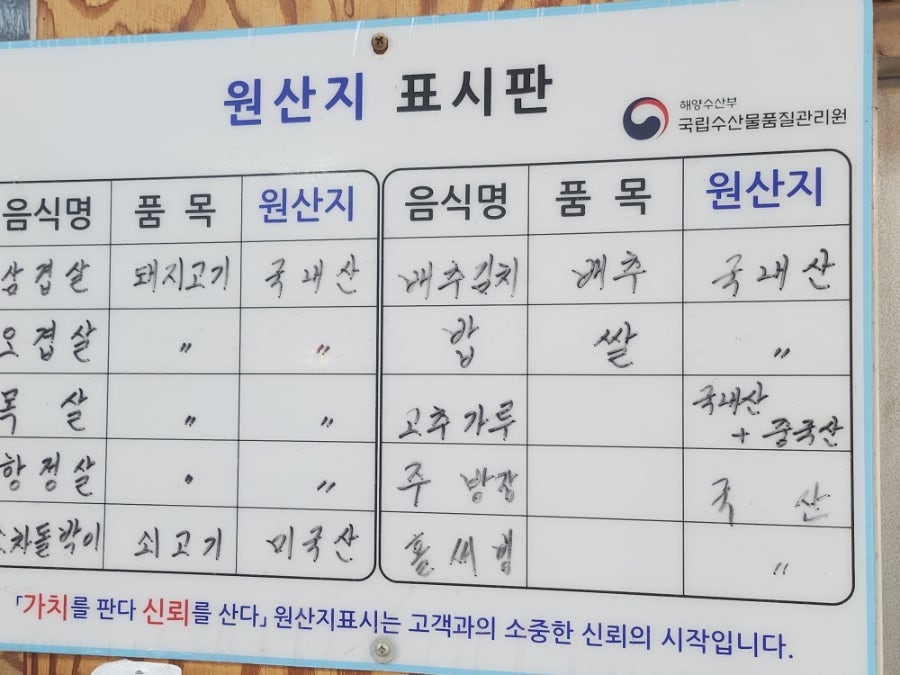 원산지 표시판
해양수산부
국립수산물품질관리원
음식명 품 목 원산지
삼겹살 돼지고기 국내산
오겹살 〃 〃
목 살 〃 〃
항정살 〃 〃
차돌박이 쇠고기 미국산
음식명 품 목 원산지
배추김치 배추 국내산
밥 쌀 〃
고추가루 국내산
+ 중국산
주 방장 국 산
홀써빙 〃
「가치를 판다 신뢰를 산다」 원산지표시는 고객과의 소중한 신뢰의 시작입니다.